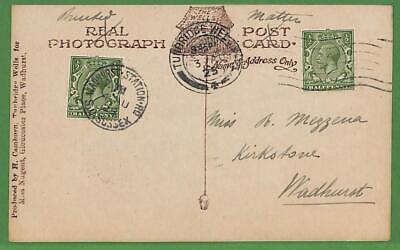 Printed Matter
REAL PHOTOGRAPH
POST CARD
Address Only
TUNBRIDGE WELLS
23
HALFPENNY
STATION RD
SUSSEX
HALFPENNY
Miss R. Mezzena
Kirkstone
Wadhurst
Produced by H. Camburn, Tunbridge Wells, for
Miss Nugent, Gloucester Place, Wadhurst.